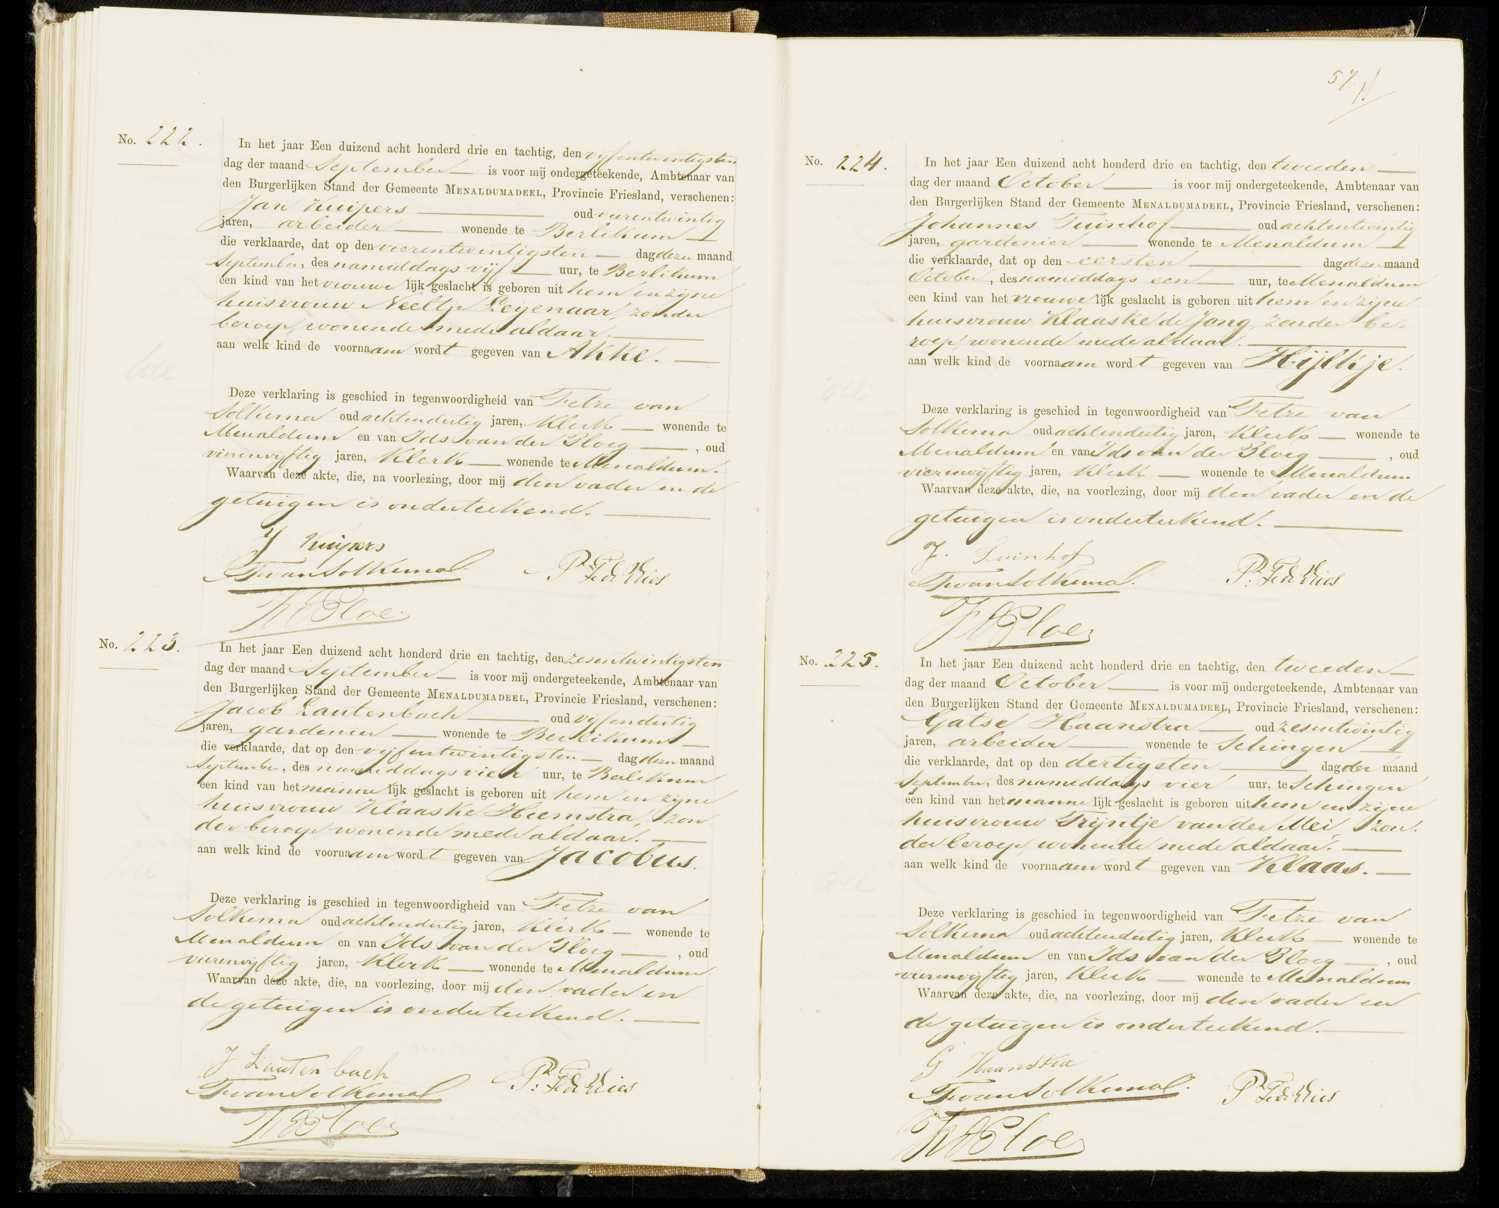 No. 222.
In het jaar Een duizend acht honderd drie en tachtig, den vijfentwintigsten
dag der maand September is voor mij ondergeteekende, Ambtenaar van
den Burgerlijken Stand der Gemeente MENALDUMADEEL, Provincie Friesland, verschenen:
Jan Kuipers oud vierentwintig
jaren, arbeider wonende te Berlikum
die verklaarde, dat op den vierentwintigsten dag dezer maand
September des namiddags vijf uur, te Berlikum
een kind van het vrouwe lijk geslacht is geboren uit hem en zijne
huisvrouw Neeltje Legenaar, zonder
beroep, wonende mede aldaar
aan welk kind de voornaam wordt gegeven van Akke.
Deze verklaring is geschied in tegenwoordigheid van Fetze van
Solkema oud achtendertig jaren, Klerk wonende te
Menaldum en van Ids van der Ploeg, oud
vierenvijftig jaren, Klerk wonende te Menaldum.
Waarvan deze akte, die, na voorlezing, door mij den vader en de
getuigen is onderteekend.
J Kuipers
F van Solkema. P. F. de Vries
IvdPloeg
No. 223.
In het jaar Een duizend acht honderd drie en tachtig, den zesentwintigsten
dag der maand September is voor mij ondergeteekende, Ambtenaar van
den Burgerlijken Stand der Gemeente MENALDUMADEEL, Provincie Friesland, verschenen:
Jacob Lautenbach oud vijfendertig
jaren, gardenier wonende te Berlikum
die verklaarde, dat op den vijfentwintigsten dag dezer maand
September, des namiddags vier uur, te Berlikum
een kind van het manne lijk geslacht is geboren uit hem en zijne
huisvrouw Klaaske Heemstra, zon
der beroep, wonende mede aldaar.
aan welk kind de voornaam wordt gegeven van Jacobus.
Deze verklaring is geschied in tegenwoordigheid van Fetze van
Solkema oud achtendertig jaren, Klerk wonende te
Menaldum en van Ids van der Ploeg, oud
vierenvijftig jaren, Klerk wonende te Menaldum
Waarvan deze akte, die, na voorlezing, door mij den vader en
de getuigen is onderteekend.
J Lautenbach
F van Solkema P. F. de Vries
IvdPloeg
57
No. 224.
In het jaar Een duizend acht honderd drie en tachtig, den tweeden
dag der maand October is voor mij ondergeteekende, Ambtenaar van
den Burgerlijken Stand der Gemeente MENALDUMADEEL, Provincie Friesland, verschenen:
Johannes Tuinhof oud achtentwintig
jaren, gardenier wonende te Menaldum
die verklaarde, dat op den eersten dag dezer maand
October, des namiddags een uur, te Menaldum
een kind van het vrouwe lijk geslacht is geboren uit hem en zijne
huisvrouw Klaaske de Jong, zonder be-
roep, wonende mede aldaar.
aan welk kind de voornaam wordt gegeven van Hijltje.
Deze verklaring is geschied in tegenwoordigheid van Fetze van
Solkema oud achtendertig jaren, Klerk wonende te
Menaldum en van Ids van der Ploeg, oud
vierenvijftig jaren, Klerk wonende te Menaldum
Waarvan deze akte, die, na voorlezing, door mij den vader en de
getuigen is onderteekend.
J. Tuinhof
F van Solkema. P. F. de Vries
IvdPloeg
No. 225.
In het jaar Een duizend acht honderd drie en tachtig, den tweeden
dag der maand October is voor mij ondergeteekende, Ambtenaar van
den Burgerlijken Stand der Gemeente MENALDUMADEEL, Provincie Friesland, verschenen:
Gatse Haanstra oud zesentwintig
jaren, arbeider wonende te Schingen
die verklaarde, dat op den dertigsten dag der maand
September, des namiddags vier uur, te Schingen
een kind van het manne lijk geslacht is geboren uit hem en zijne
huisvrouw Trijntje van der Mei, zon-
der beroep, wonende mede aldaar.
aan welk kind de voornaam wordt gegeven van Klaas.
Deze verklaring is geschied in tegenwoordigheid van Fetze van
Solkema oud achtendertig jaren, Klerk wonende te
Menaldum en van Ids van der Ploeg, oud
vierenvijftig jaren, Klerk wonende te Menaldum
Waarvan deze akte, die, na voorlezing, door mij den vader en
de getuigen is onderteekend.
G Haanstra
F van Solkema. P. F. de Vries
IvdPloeg